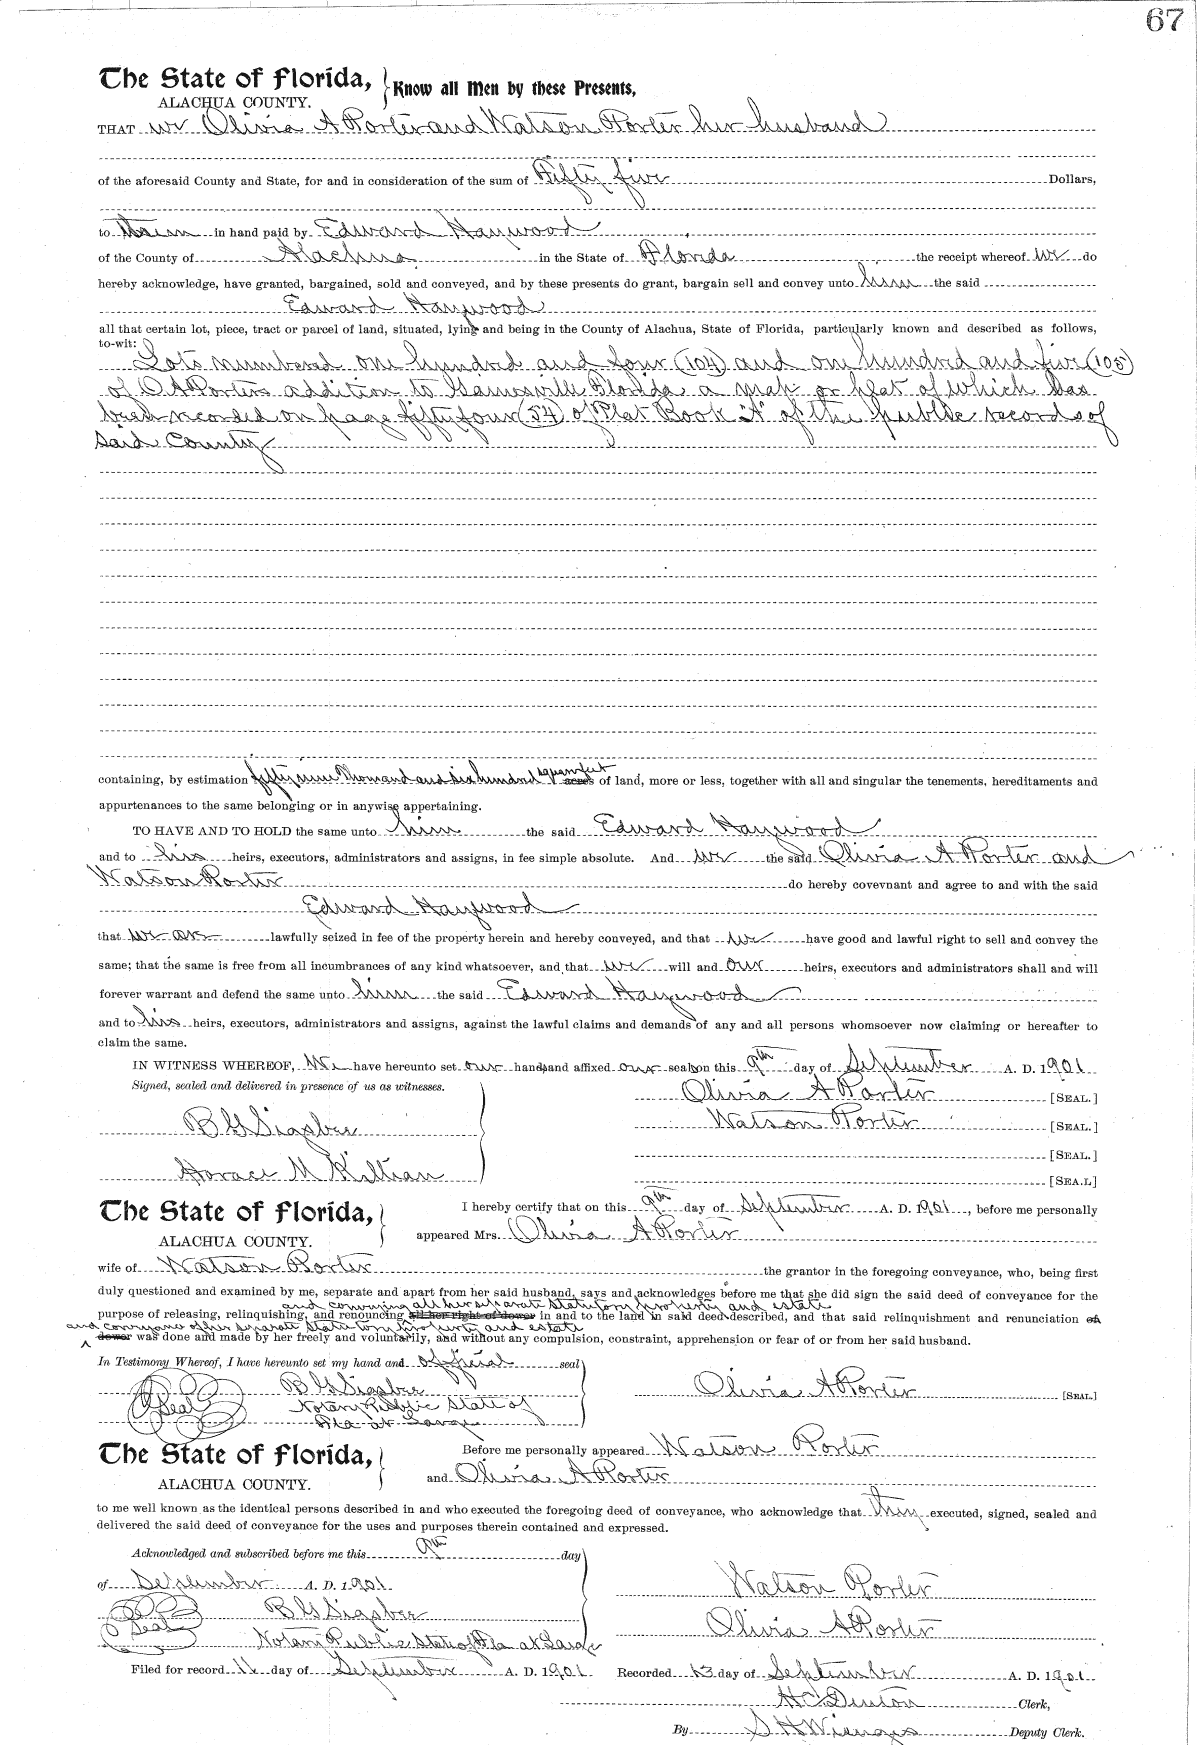 67
The State of Florida, Know all Men by these Presents,
ALACHUA COUNTY.
THAT we Olivia A Porter and Watson Porter her husband
of the aforesaid County and State, for and in consideration of the sum of Fifty five Dollars,
to them in hand paid by Edward Haywood
of the County of Alachua in the State of Florida the receipt whereof we do
hereby acknowledge, have granted, bargained, sold and conveyed, and by these presents do grant, bargain sell and convey unto him the said
Edward Haywood
all that certain lot, piece, tract or parcel of land, situated, lying and being in the County of Alachua, State of Florida, particularly known and described as follows,
to-wit:
Lots numbered one hundred and four (104) and one hundred and five (105)
of O A Porters addition to Gainesville Florida a map or plat of which has
been recorded on page fifty four (54) of Plat Book "A" of the public records of
said County
containing, by estimation fifty nine thousand and six hundred square feet acres of land, more or less, together with all and singular the tenements, hereditaments and
appurtenances to the same belonging or in anywise appertaining.
TO HAVE AND TO HOLD the same unto him the said Edward Haywood
and to his heirs, executors, administrators and assigns, in fee simple absolute. And we the said Olivia A Porter and
Watson Porter do hereby covevnant and agree to and with the said
Edward Haywood
that we are lawfully seized in fee of the property herein and hereby conveyed, and that we have good and lawful right to sell and convey the
same; that the same is free from all incumbrances of any kind whatsoever, and that we will and our heirs, executors and administrators shall and will
forever warrant and defend the same unto him the said Edward Haywood
and to his heirs, executors, administrators and assigns, against the lawful claims and demands of any and all persons whomsoever now claiming or hereafter to
claim the same.
IN WITNESS WHEREOF, We have hereunto set our hands and affixed our seals on this 9th day of September A. D. 1901
Signed, sealed and delivered in presence of us as witnesses. Olivia A Porter [SEAL.]
B G Sigsbee Watson Porter [SEAL.]
[SEAL.]
Horace M Killian [SEA.L]
The State of Florida, I hereby certify that on this 9th day of September A. D. 1901, before me personally
ALACHUA COUNTY. appeared Mrs. Olivia A Porter
wife of Watson Porter the grantor in the foregoing conveyance, who, being first
duly questioned and examined by me, separate and apart from her said husband, says and acknowledges before me that she did sign the said deed of conveyance for the
and conveying all her separate Statutory property and estate
purpose of releasing, relinquishing, and renouncing all her right of dower in and to the land in said deed described, and that said relinquishment and renunciation of
and conveyance of her separate Statutory property and estate
dower was done and made by her freely and voluntarily, and without any compulsion, constraint, apprehension or fear of or from her said husband.
In Testimony Whereof, I have hereunto set my hand and official seal
B G Sigsbee Olivia A Porter [SEAL]
Seal Notary Public State of
Fla at Large
The State of Florida, Before me personally appeared Watson Porter
ALACHUA COUNTY. and Olivia A Porter
to me well known as the identical persons described in and who executed the foregoing deed of conveyance, who acknowledge that they executed, signed, sealed and
delivered the said deed of conveyance for the uses and purposes therein contained and expressed.
Acknowledged and subscribed before me this 9th day
of September A. D. 1901 Watson Porter
B G Sigsbee
Seal Olivia A Porter
Notary Public State of Fla at Large
Filed for record 11 day of September A. D. 1901 Recorded 13 day of September A. D. 1901
H C Denton Clerk,
By S H Wienges Deputy Clerk.